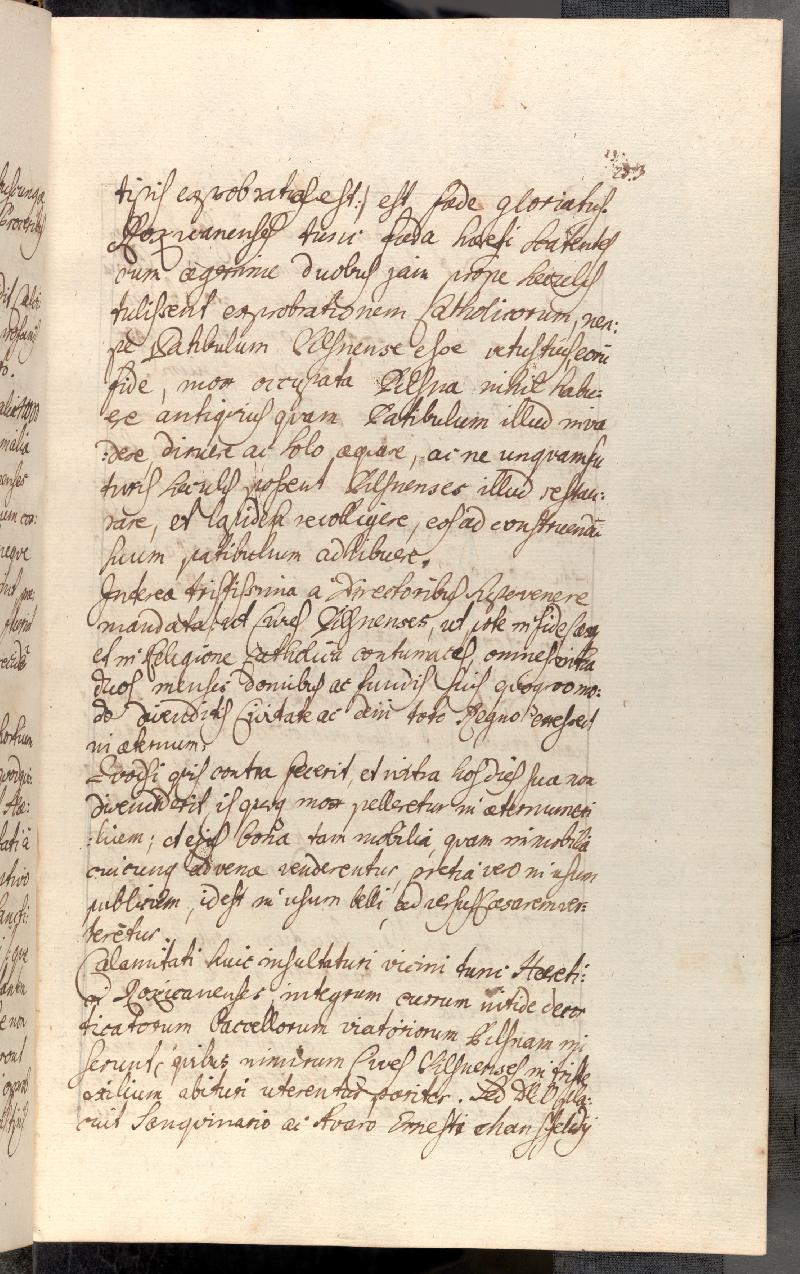 tistis exprobratus est:/ est fæde gloriatus.
Roxicanenses tunc fæda hæresi scatentes
cum ægerrime duobus jam prope sæculis
tulissent exprobrationem Catholicorum, nem:
pe Patibulum Pilsnense esse vetustius eorū
fide, mox occupata Pilsna nihil habu:
ere antiquius quam Patibulum illud inva
:dere, diruere ac solo æquare, ac ne unquam fu
turis sæculis possent Pilsnenses illud restau:
rare, et lapides recolligere, eos ad construendū
suum patibulum adhibuere.
Interea tristissima a Directoribus supervenere
mandata: ut Cives Pilsnenses, ut pote in fide Cæs
et in Religione Catholica contumaces, omnes intra
duos menses domibus ac fundis suis quoquo mo:
do divenditis Civitate ac dein toto Regno
in æternum.
Quodsi quis contra fecerit, et intra hos dies sua non
divendiderit, is quoq mox pelleretur in æternum exi
:lium; et ejus bona tam mobilia, quam immobilia
cuicunq advenæ venderentur, pretia vero in usum
publicum, id est in usum belli, adversus Cæsarem ver:
terētur.
Calamitati huic insultaturi vicini tunc Hæreti:
ci Roxicanenses, integrum currum nitide decor
ticatorum Baccellorum viatoriorum Pilsnam mi
serunt, quibus nimirum Cives Pilsnenses in triste
exilium abituri uterentur pariter. Sed DEO pla:
cuit Sanguinario ac Avaro Ernesti Mansfeldij